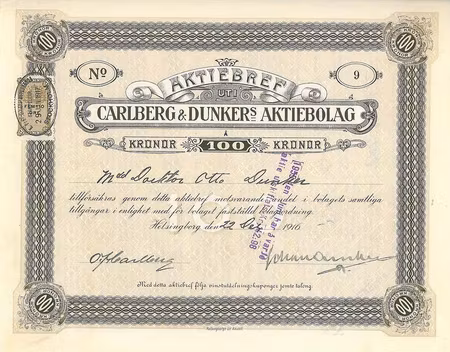 100 100
Nº 9
AKTIEBREF
UTI
CARLBERG & DUNKERS AKTIEBOLAG
Å
KRONOR 100 KRONOR
Med Doktor Otto Dunker
tillförsäkras genom detta aktiebref motsvarande andel i bolagets samtliga
tillgångar i enlighet med för bolaget fastställd bolagsordning.
Helsingborg den 22 Dec 1916
O. Carlberg Johan Dunker
Med detta aktiebref följa vinstutdelningskuponger jemte talong.
100 100